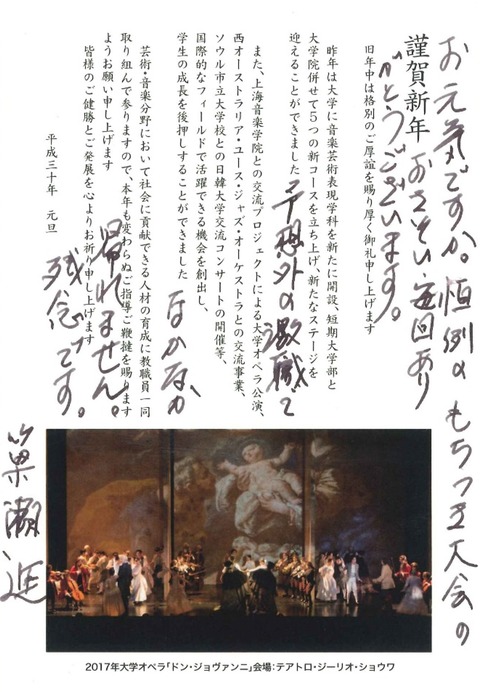 謹賀新年
旧年中は格別のご厚誼を賜り厚く御礼申し上げます
昨年は大学に音楽芸術表現学科を新たに開設、短期大学部と
大学院併せて5つの新コースを立ち上げ、新たなステージを
迎えることができました
また、上海音楽学院との交流プロジェクトによる大学オペラ公演、
西オーストラリア・ユース・ジャズ・オーケストラとの交流事業、
ソウル市立大学校との日韓大学交流コンサートの開催等、
国際的なフィールドで活躍できる機会を創出し、
学生の成長を後押しすることができました
芸術・音楽分野において社会に貢献できる人材の育成に教職員一同
取り組んで参りますので、本年も変わらぬご指導ご鞭撻を賜ります
ようお願い申し上げます
皆様のご健勝とご発展を心よりお祈り申し上げます
平成三十年 元旦
お元気ですか。恒例のもちつき大会の
おさそい、毎回あり
がとうございます。
予想外の激職で
なかなか
帰れません。
残念です。
簗瀬進
2017年大学オペラ「ドン・ジョヴァンニ」会場:テアトロ・ジーリオ・ショウワ